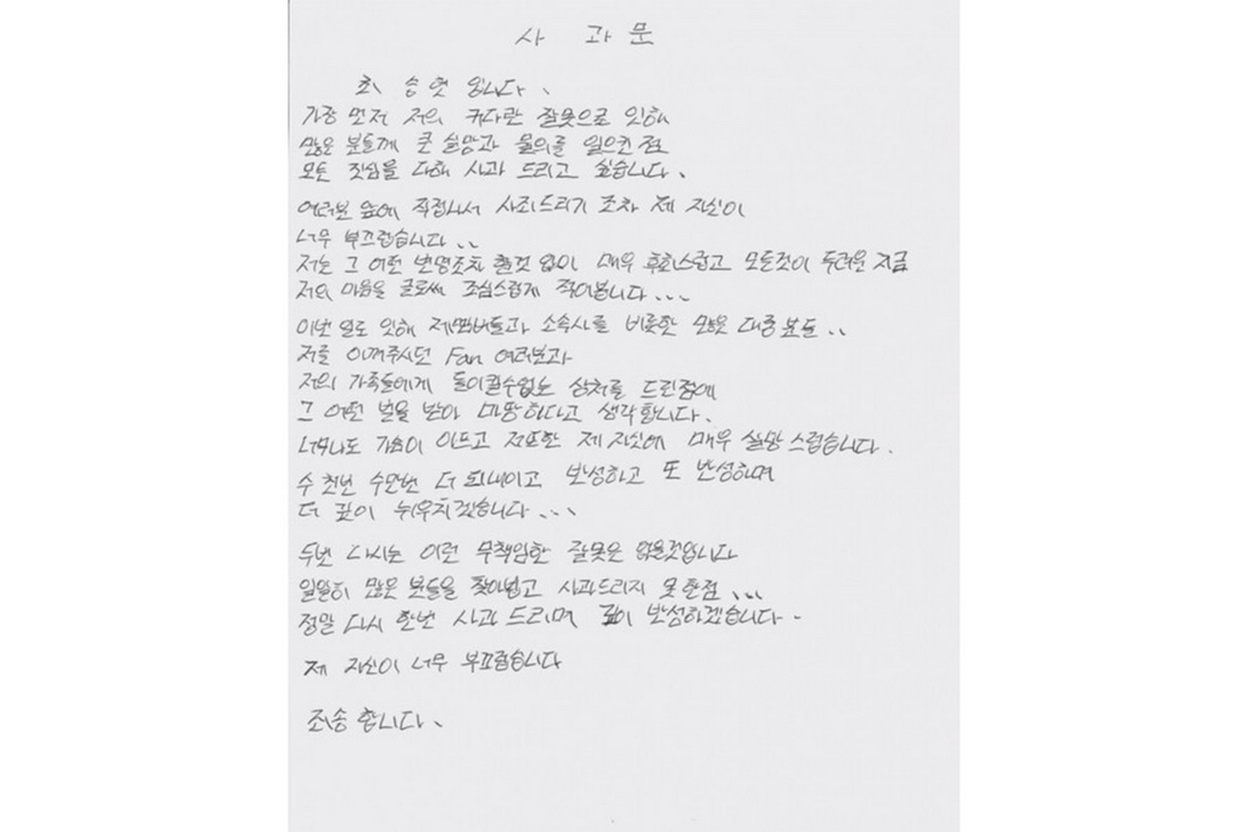 사 과 문
최 승 현 입니다.
가장 먼저 저의 커다란 잘못으로 인해
많은 분들께 큰 실망과 물의를 일으킨 점
모든 진심을 다해 사과 드리고 싶습니다.
여러분 앞에 직접나서 사죄드리기 조차 제 자신이
너무 부끄럽습니다..
저는 그 어떤 변명조차 할것 없이 매우 후회스럽고 모든것이 두려운 지금
저의 마음을 글로써 조심스럽게 적어봅니다...
이번 일로 인해 제멤버들과 소속사를 비롯한 많은 대중분들..
저를 아껴주시던 Fan 여러분과
저의 가족들에게 돌이킬수없는 상처를 드린점에
그 어떤 벌을 받아 마땅하다고 생각합니다.
너무나도 가슴이 아프고 저또한 제 자신에 매우 실망스럽습니다.
수 천번 수만번 더 되내이고 반성하고 또 반성하며
더 깊이 뉘우치겠습니다...
두번 다시는 이런 무책임한 잘못은 없을것입니다
일일히 많은 분들을 찾아뵙고 사과드리지 못한점...
정말 다시 한번 사과 드리며 깊이 반성하겠습니다.
제 자신이 너무 부끄럽습니다
죄송 합니다.